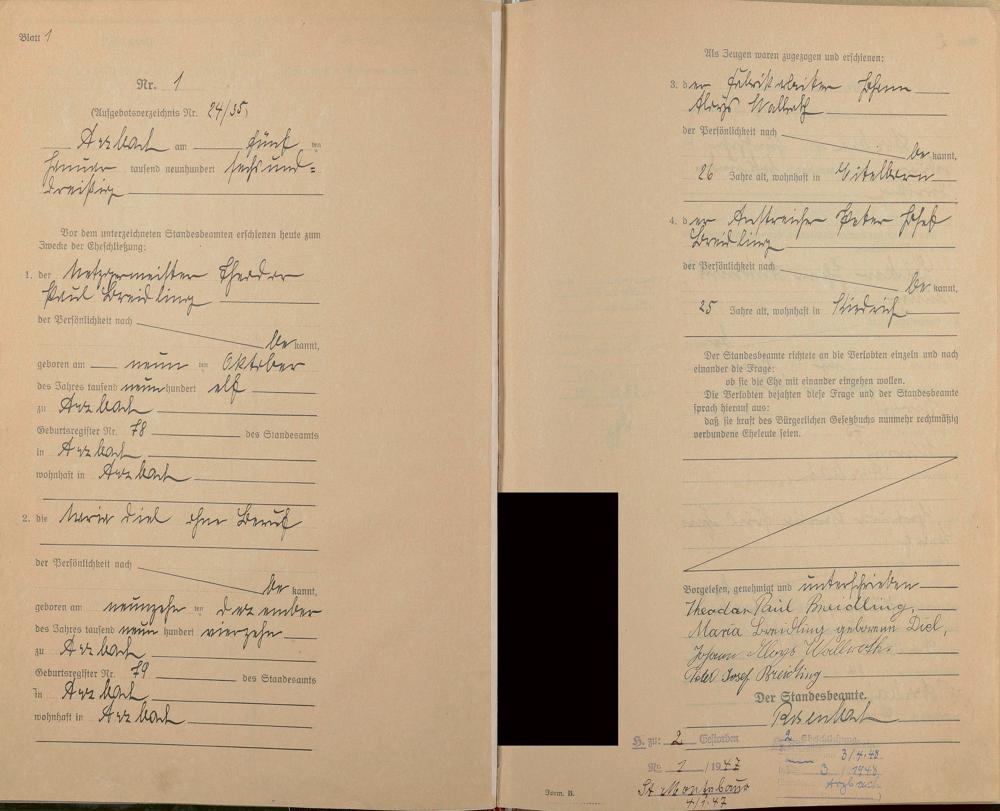 Blatt 1
Nr. 1
(Aufgebotsverzeichnis Nr. 24/35)
Arzbach am fünf ten
Januar tausend neunhundert sechsund=
dreißig
Vor dem unterzeichneten Standesbeamten erschienen heute zum
Zwecke der Eheschließung:
1. der Metzgermeister Theodor
Paul Breidling
der Persönlichkeit nach
be kannt,
geboren am neun ten Oktober
des Jahres tausend neun hundert elf
zu Arzbach
Geburtsregister Nr. 78 des Standesamts
in Arzbach
wohnhaft in Arzbach
2. die Maria Diel ohne Beruf
der Persönlichkeit nach
be kannt,
geboren am neunzehn ten Dezember
des Jahres tausend neun hundert vierzehn
zu Arzbach
Geburtsregister Nr. 79 des Standesamts
in Arzbach
wohnhaft in Arzbach
Als Zeugen waren zugezogen und erschienen:
3. der Fabrikarbeiter Johann
Aloys Wallroth
der Persönlichkeit nach
be kannt,
26 Jahre alt, wohnhaft in Eitelborn
4. der Anstreicher Peter Josef
Breidling
der Persönlichkeit nach
be kannt,
25 Jahre alt, wohnhaft in Kiedrich
Der Standesbeamte richtete an die Verlobten einzeln und nach
einander die Frage:
ob sie die Ehe mit einander eingehen wollen.
Die Verlobten bejahten diese Frage und der Standesbeamte
sprach hierauf aus:
daß sie kraft des Bürgerlichen Gesetzbuchs nunmehr rechtmäßig
verbundene Eheleute seien.
Vorgelesen, genehmigt und unterschrieben
Theodor Paul Breidling,
Maria Breidling geborene Diel,
Johann Aloys Wallroth
Peter Josef Breidling
Der Standesbeamte.
Rosenbach
H. zu: 2 Gestorben
Nr. 1 /1947
St. Montabaur
4/1.47
2. Eheschließung
3/4.48
3 /1948
Arzbach
Form. B.